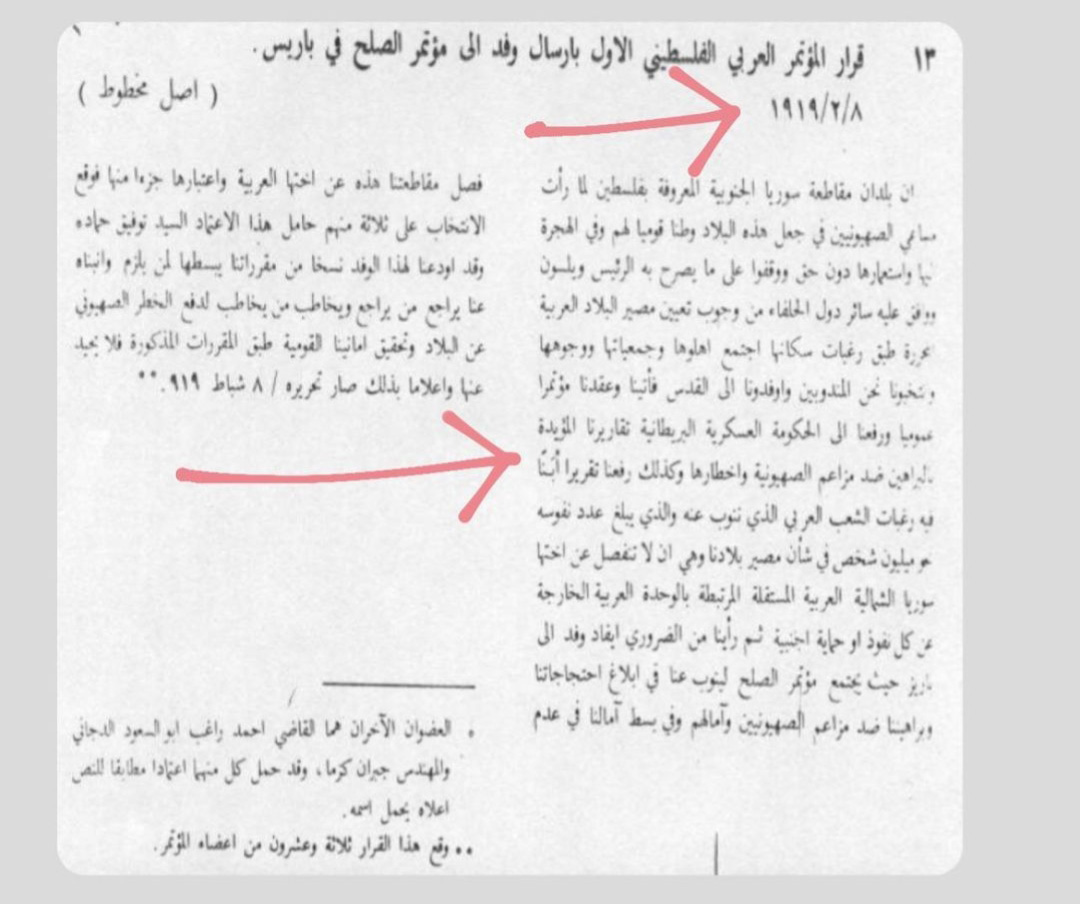 ١٣ قرار المؤتمر العربي الفلسطيني الاول بارسال وفد الى مؤتمر الصلح في باريس .
١٩١٩/٢/٨
( اصل مخطوط )
ان بلدان مقاطعة سوريا الجنوبية المعروفة بفلسطين لما رأت
مساعي الصهيونيين في جعل هذه البلاد وطنا قوميا لهم وفي الهجرة
اليها واستعمارها دون حق ووقفوا على ما يصرح به الرئيس ويلسون
ووافق عليه سائر دول الحلفاء من وجوب تعيين مصير البلاد العربية
المحررة طبق رغبات سكانها اجتمع اهلوها وجمعياتها ووجوهها
وانتخبونا نحن المندوبين واوفدونا الى القدس فأتينا وعقدنا مؤتمرا
عموميا ورفعنا الى الحكومة العسكرية البريطانية تقاريرنا المؤيدة
بالبراهين ضد مزاعم الصهيونية واخطارها وكذلك رفعنا تقريرا أبَنّا
فيه رغبات الشعب العربي الذي ننوب عنه والذي يبلغ عدد نفوسه
نحو مليون شخص في شأن مصير بلادنا وهي ان لا تنفصل عن اختها
سوريا الشمالية العربية المستقلة المرتبطة بالوحدة العربية الخارجة
عن كل نفوذ او حماية اجنبية ثم رأينا من الضروري ايفاد وفد الى
باريز حيث يجتمع مؤتمر الصلح لينوب عنا في ابلاغ احتجاجاتنا
وبراهيننا ضد مزاعم الصهيونيين وآمالهم وفي بسط آمالنا في عدم
فصل مقاطعتنا هذه عن اختها العربية واعتبارها جزءا منها فوقع
الانتخاب على ثلاثة منهم حامل هذا الاعتماد السيد توفيق حماده
وقد اودعنا لهذا الوفد نسخا من مقرراتنا يبسطها لمن يلزم وانبناه
عنا يراجع من يراجع ويخاطب من يخاطب لدفع الخطر الصهيوني
عن البلاد وتحقيق امانينا القومية طبق المقررات المذكورة فلا يحيد
عنها واعلاما بذلك صار تحريره / ٨ شباط ٩١٩ .**
* العضوان الآخران هما القاضي احمد راغب ابو السعود الدجاني
والمهندس جبران كزما، وقد حمل كل منهما اعتمادا مطابقا للنص
اعلاه يحمل اسمه.
** وقع هذا القرار ثلاثة وعشرون من اعضاء المؤتمر.